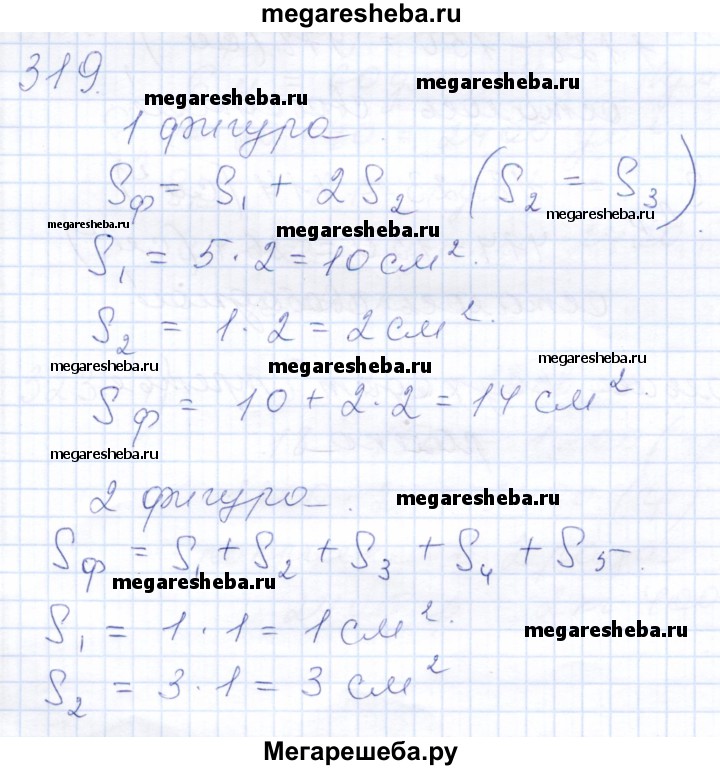 megaresheba.ru
319.
megaresheba.ru
megaresheba.ru
1 фигура.
Sф = S₁ + 2S₂ (S₂ = S₃).
megaresheba.ru
megaresheba.ru
megaresheba.ru
S₁ = 5 · 2 = 10 см².
S₂ = 1 · 2 = 2 см².
megaresheba.ru
megaresheba.ru
megaresheba.ru
Sф = 10 + 2 · 2 = 14 см².
megaresheba.ru
2 фигура.
megaresheba.ru
Sф = S₁ + S₂ + S₃ + S₄ + S₅.
megaresheba.ru
S₁ = 1 · 1 = 1 см².
megaresheba.ru
S₂ = 3 · 1 = 3 см²
Мегарешеба.ру